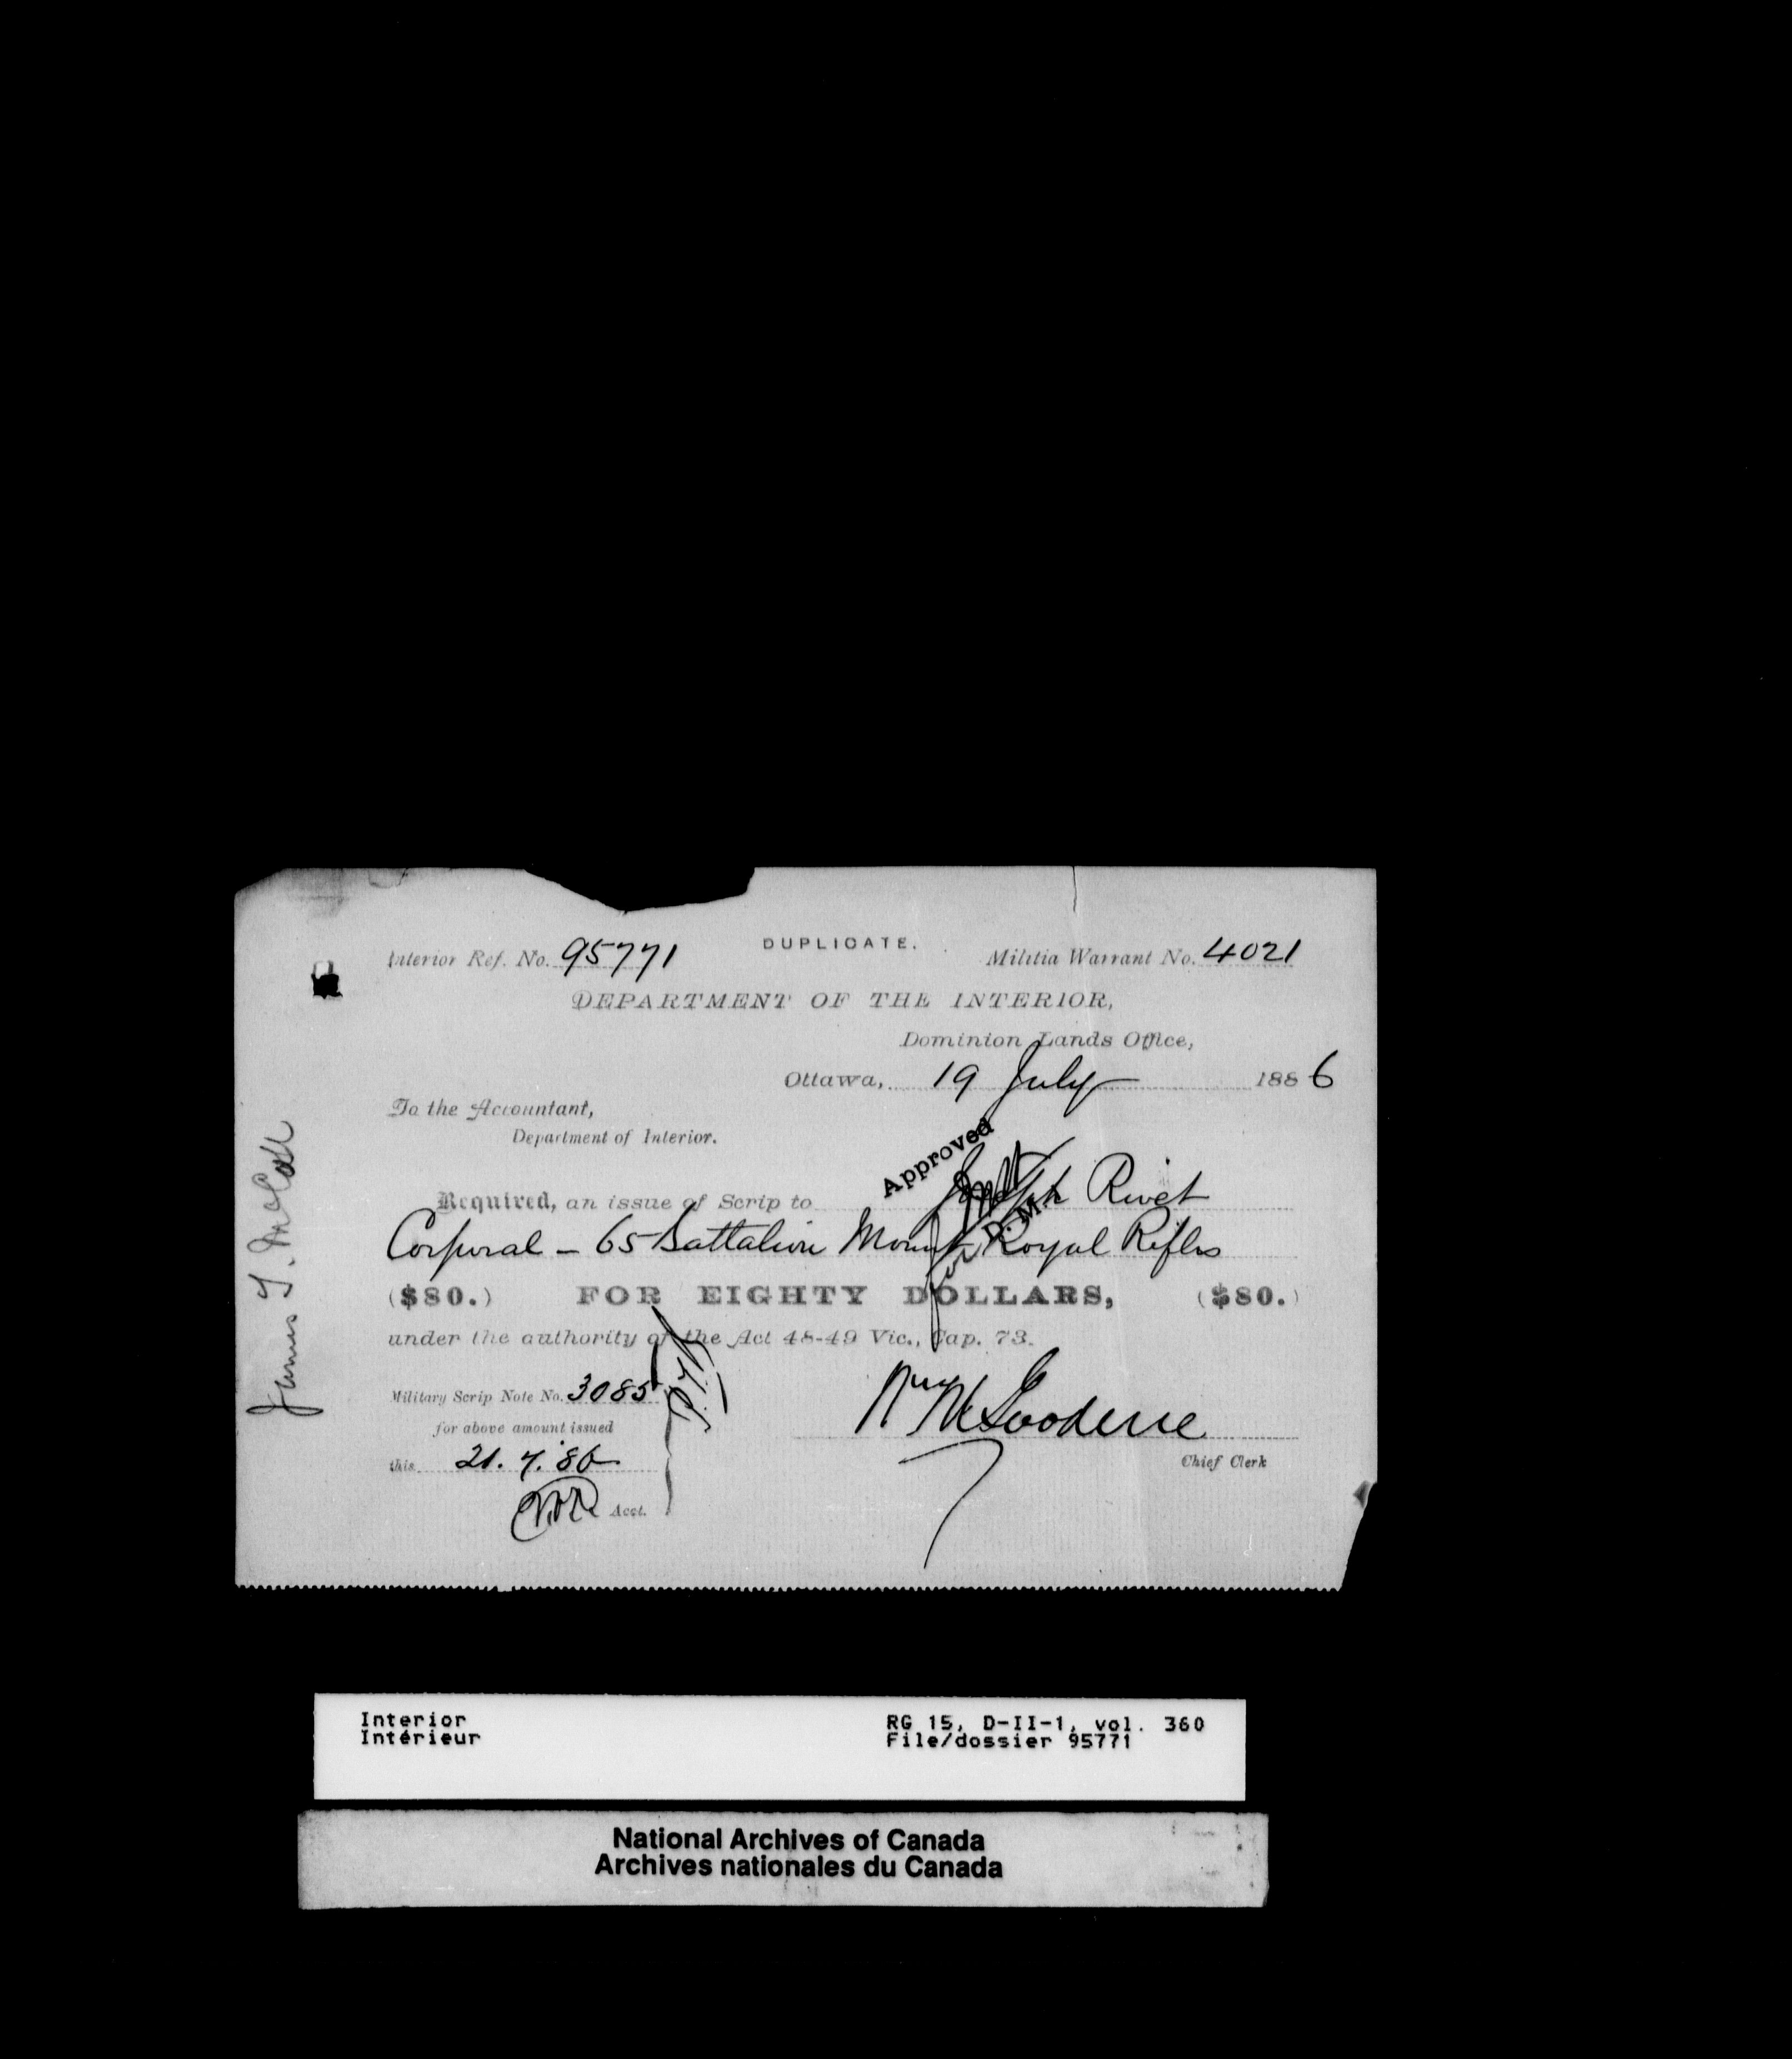 DUPLICATE.
Interior Ref. No. 95771 Militia Warrant No. 4021
DEPARTMENT OF THE INTERIOR,
Dominion Lands Office,
Ottawa, 19 July 1886
To the Accountant,
Department of Interior.
Approved
for D. M.
Required, an issue of Scrip to Joseph Rivet
Corporal - 65 Battalion Mount Royal Rifles
($80.) FOR EIGHTY DOLLARS, ($80.)
under the authority of the Act 48-49 Vic., Cap. 73.
Military Scrip Note No. 3085
for above amount issued
this 21. 7. 86
Acct.
Chief Clerk
James T. McCall
Interior
Intérieur
RG 15, D-II-1, vol. 360
File/dossier 95771
National Archives of Canada
Archives nationales du Canada